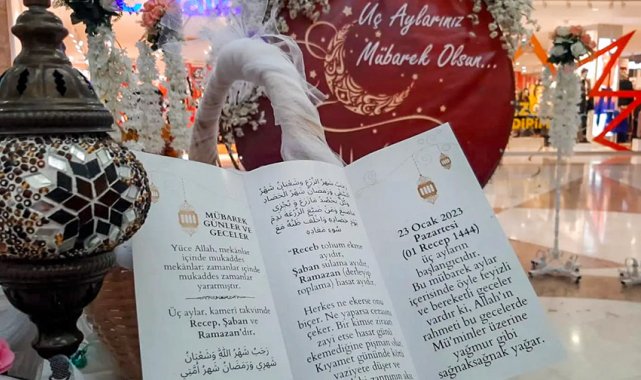 Üç Aylarınız
Mübarek Olsun...
MÜBAREK
GÜNLER VE
GECELER
Yüce Allah, mekânlar
içinde mukaddes
mekânlar, zamanlar içinde
mukaddes zamanlar
yaratmıştır.
Üç aylar, kameri takvimde
Recep, Şaban ve
Ramazan'dır.
رَجَبُ شَهْرُ اللهِ وَشَعْبَانُ
شَهْرِي وَرَمَضَانُ شَهْرُ أُمَّتِي
رَجَبُ شَهْرُ الزَّرْعِ وَشَعْبَانُ شَهْرُ
-Recep tohum ekme
ayıdır,
Şaban sulama ayıdır,
Ramazan (derleyip
toplama) hasat ayıdır.
Herkes ne ekerse onu
biçer. Ne yapara cezasını
çeker. Bir kimse ziraatı
zayi etse hasat günü
ekemediğine pişman olur.
Kıyamet gününde kötü
vaziyete düşer ve
23 Ocak 2023
Pazartesi
(01 Recep 1444)
üç ayların
başlangıcıdır.
Bu mübarek aylar
içerisinde öyle feyizli
ve bereketli geceler
vardır ki, Allah'ın
rahmeti bu gecelerde
Mü'minler üzerine
yağmur gibi
sağnaksağnak yağar.